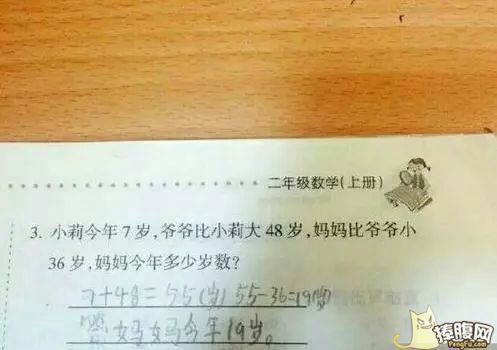 二年级数学(上册)
3. 小莉今年7岁,爷爷比小莉大48岁,妈妈比爷爷小
36岁,妈妈今年多少岁数?
7+48=55(岁) 55-36=19(岁)
答:妈妈今年19岁。
捧腹网
PengFu.com